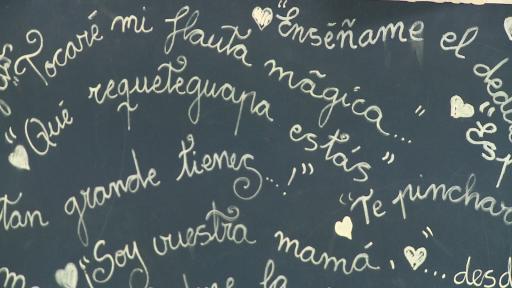 "Tocaré mi flauta mágica..."
"Enséñame el dedo
"Qué requeteguapa estás"
tan grande tienes...!"
"Te pinchar
"¡Soy vuestra mamá,"... desd